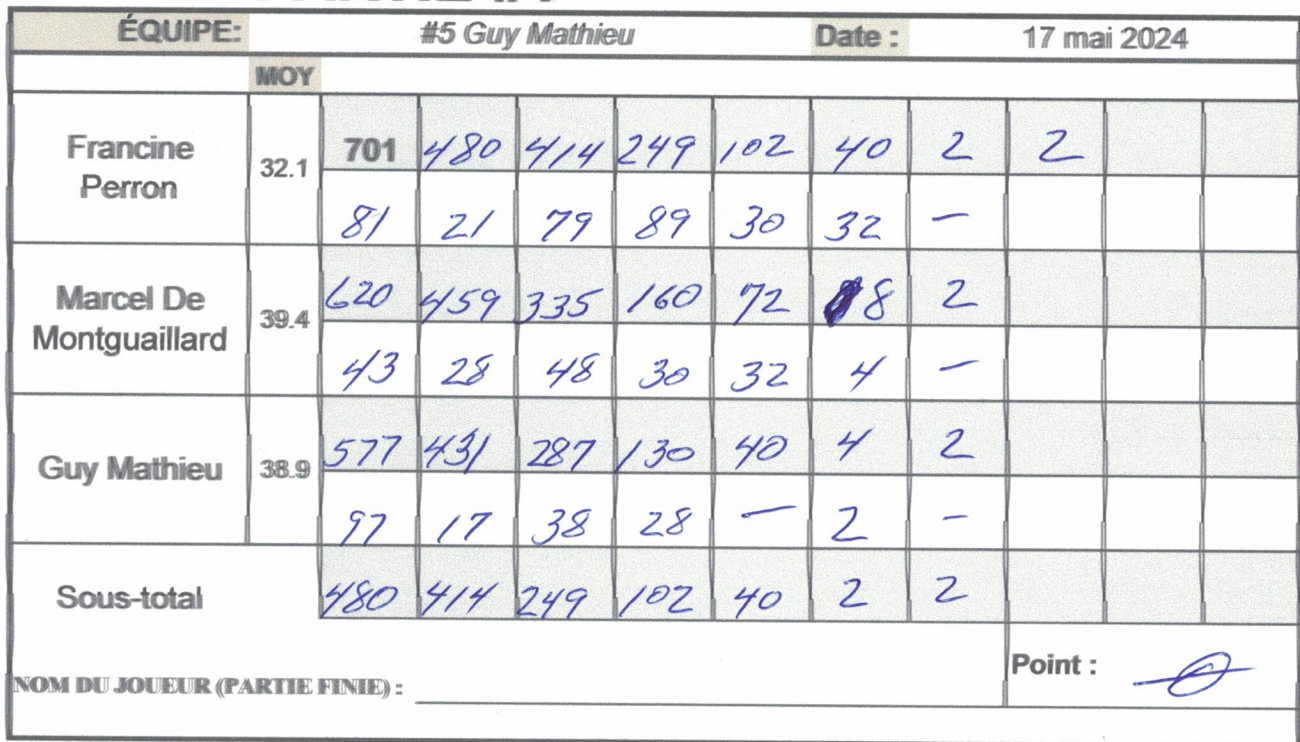 ÉQUIPE: #5 Guy Mathieu Date : 17 mai 2024
MOY
Francine Perron 32.1 701 480 414 249 102 40 2 2
81 21 79 89 30 32 –
Marcel De Montguaillard 39.4 620 459 335 160 72 8 2
43 28 48 30 32 4 –
Guy Mathieu 38.9 577 431 287 130 40 4 2
97 17 38 28 – 2 –
Sous-total 480 414 249 102 40 2 2
Point :
NOM DU JOUEUR (PARTIE FINIE) :